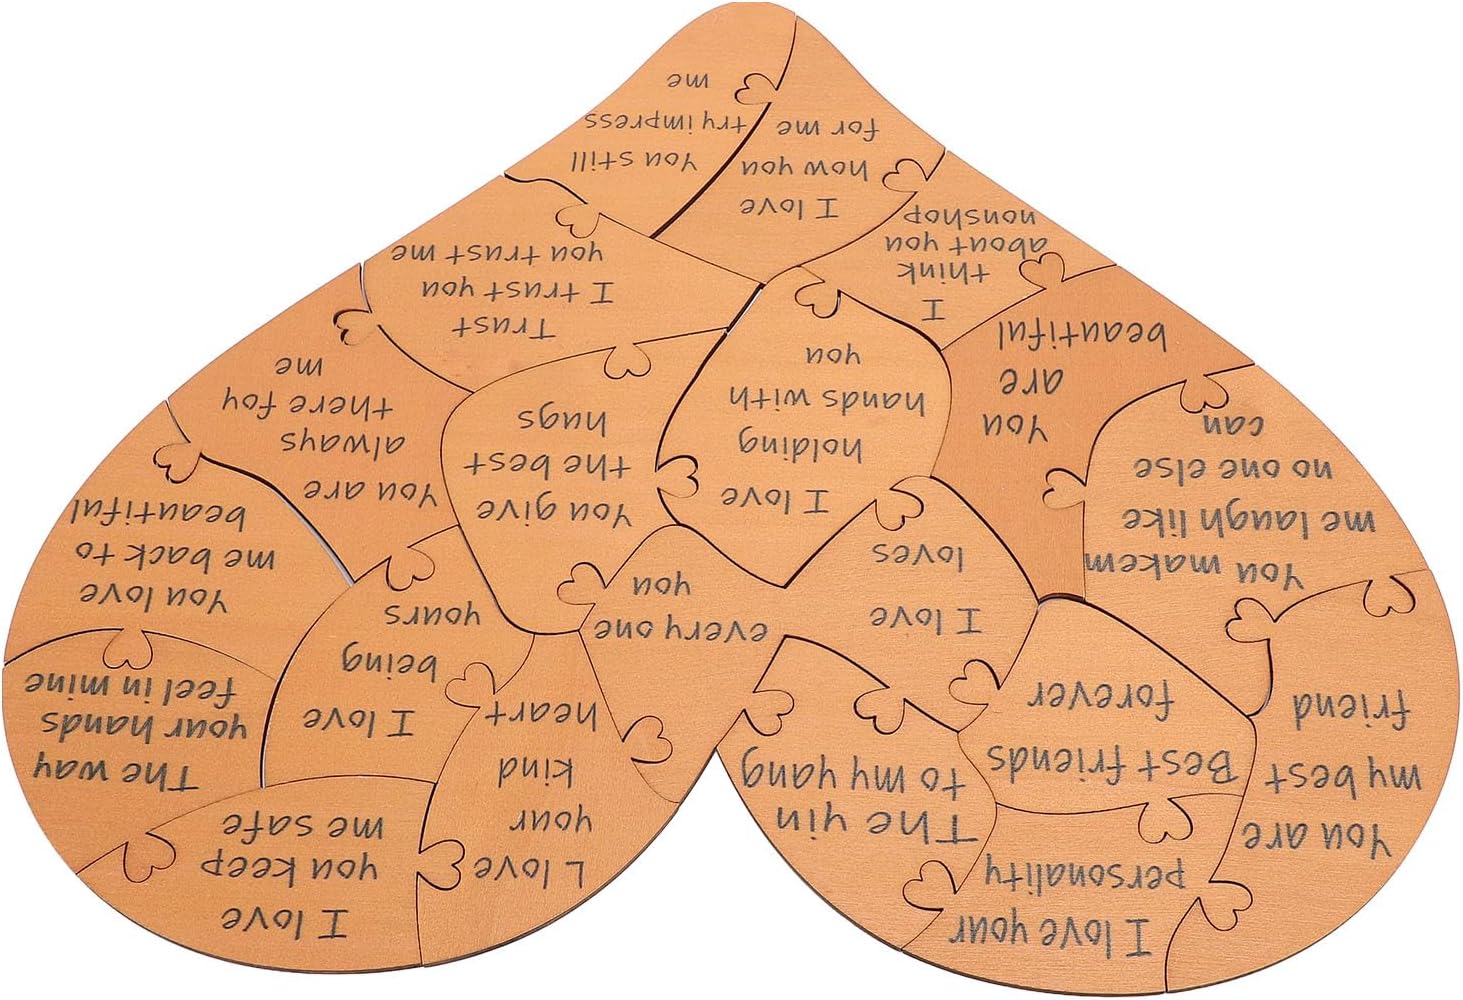 I love your
personality
You are
my best
friend
Best friends
forever
The yin
to my yang
L love
your
kind
heart
I love
you keep
me safe
The way
your hands
feel in mine
I love
being
yours
every one
you
I love
loves
You makem
me laugh like
no one else
can
You
are
beautiful
I love
holding
hands with
you
You give
the best
hugs
You love
me back to
beautiful
You are
always
there foy
me
Trust
I trust you
you trust me
I
think
about you
nonshop
I love
how you
for me
You still
try impress
me